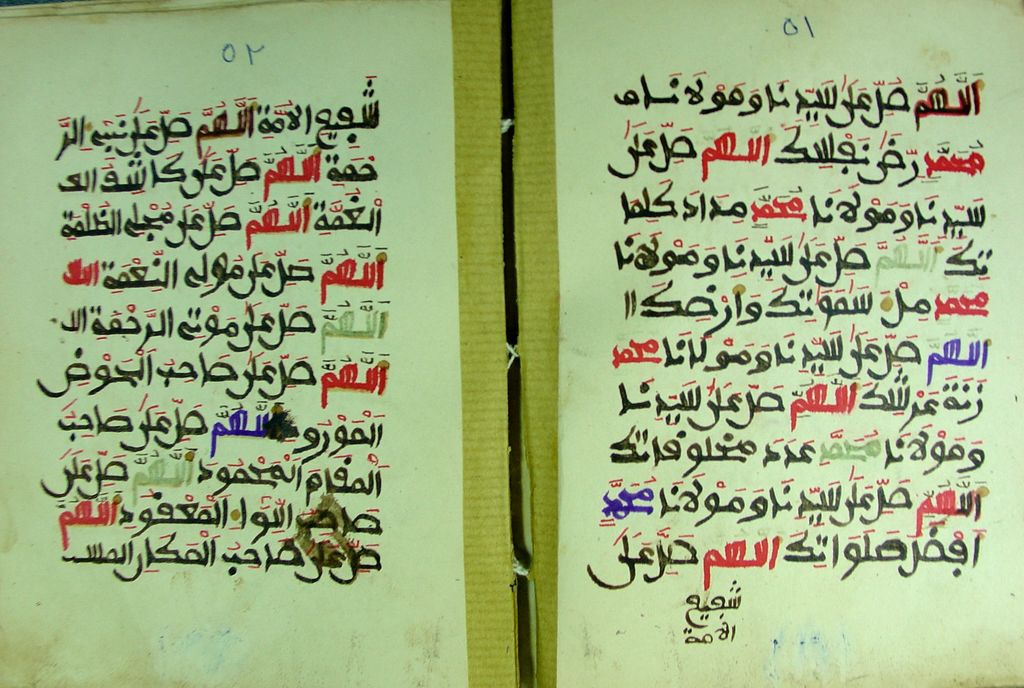 ٥١
اللهم صل على سيدنا ومولانا
محمد رضى نفسك اللهم صل على
سيدنا ومولانا محمد مداد كلما
تك اللهم صل على سيدنا ومولانا
محمد مل سموتك وارضك
اللهم صل على سيدنا ومولانا محمد
زنة عرشك اللهم صل على سيدنا
ومولانا محمد عدد مخلوقاتك
اللهم صل على سيدنا ومولانا محمد
افضل صلواتك اللهم صل على
شفيع
الامة
٥٢
شفيع الامة اللهم صل على نبي الر
حمة اللهم صل على كاشف
الغمة اللهم صل على مجلي الظلمة
اللهم صل على مولى النعمة
اللهم صل على موتي الرحمة
اللهم صل على صاحب الحوض
المورود اللهم صل على صاحب
المقام المحمود اللهم صل على
صاحب اللوا المعقود اللهم
صل على صاحب المكان